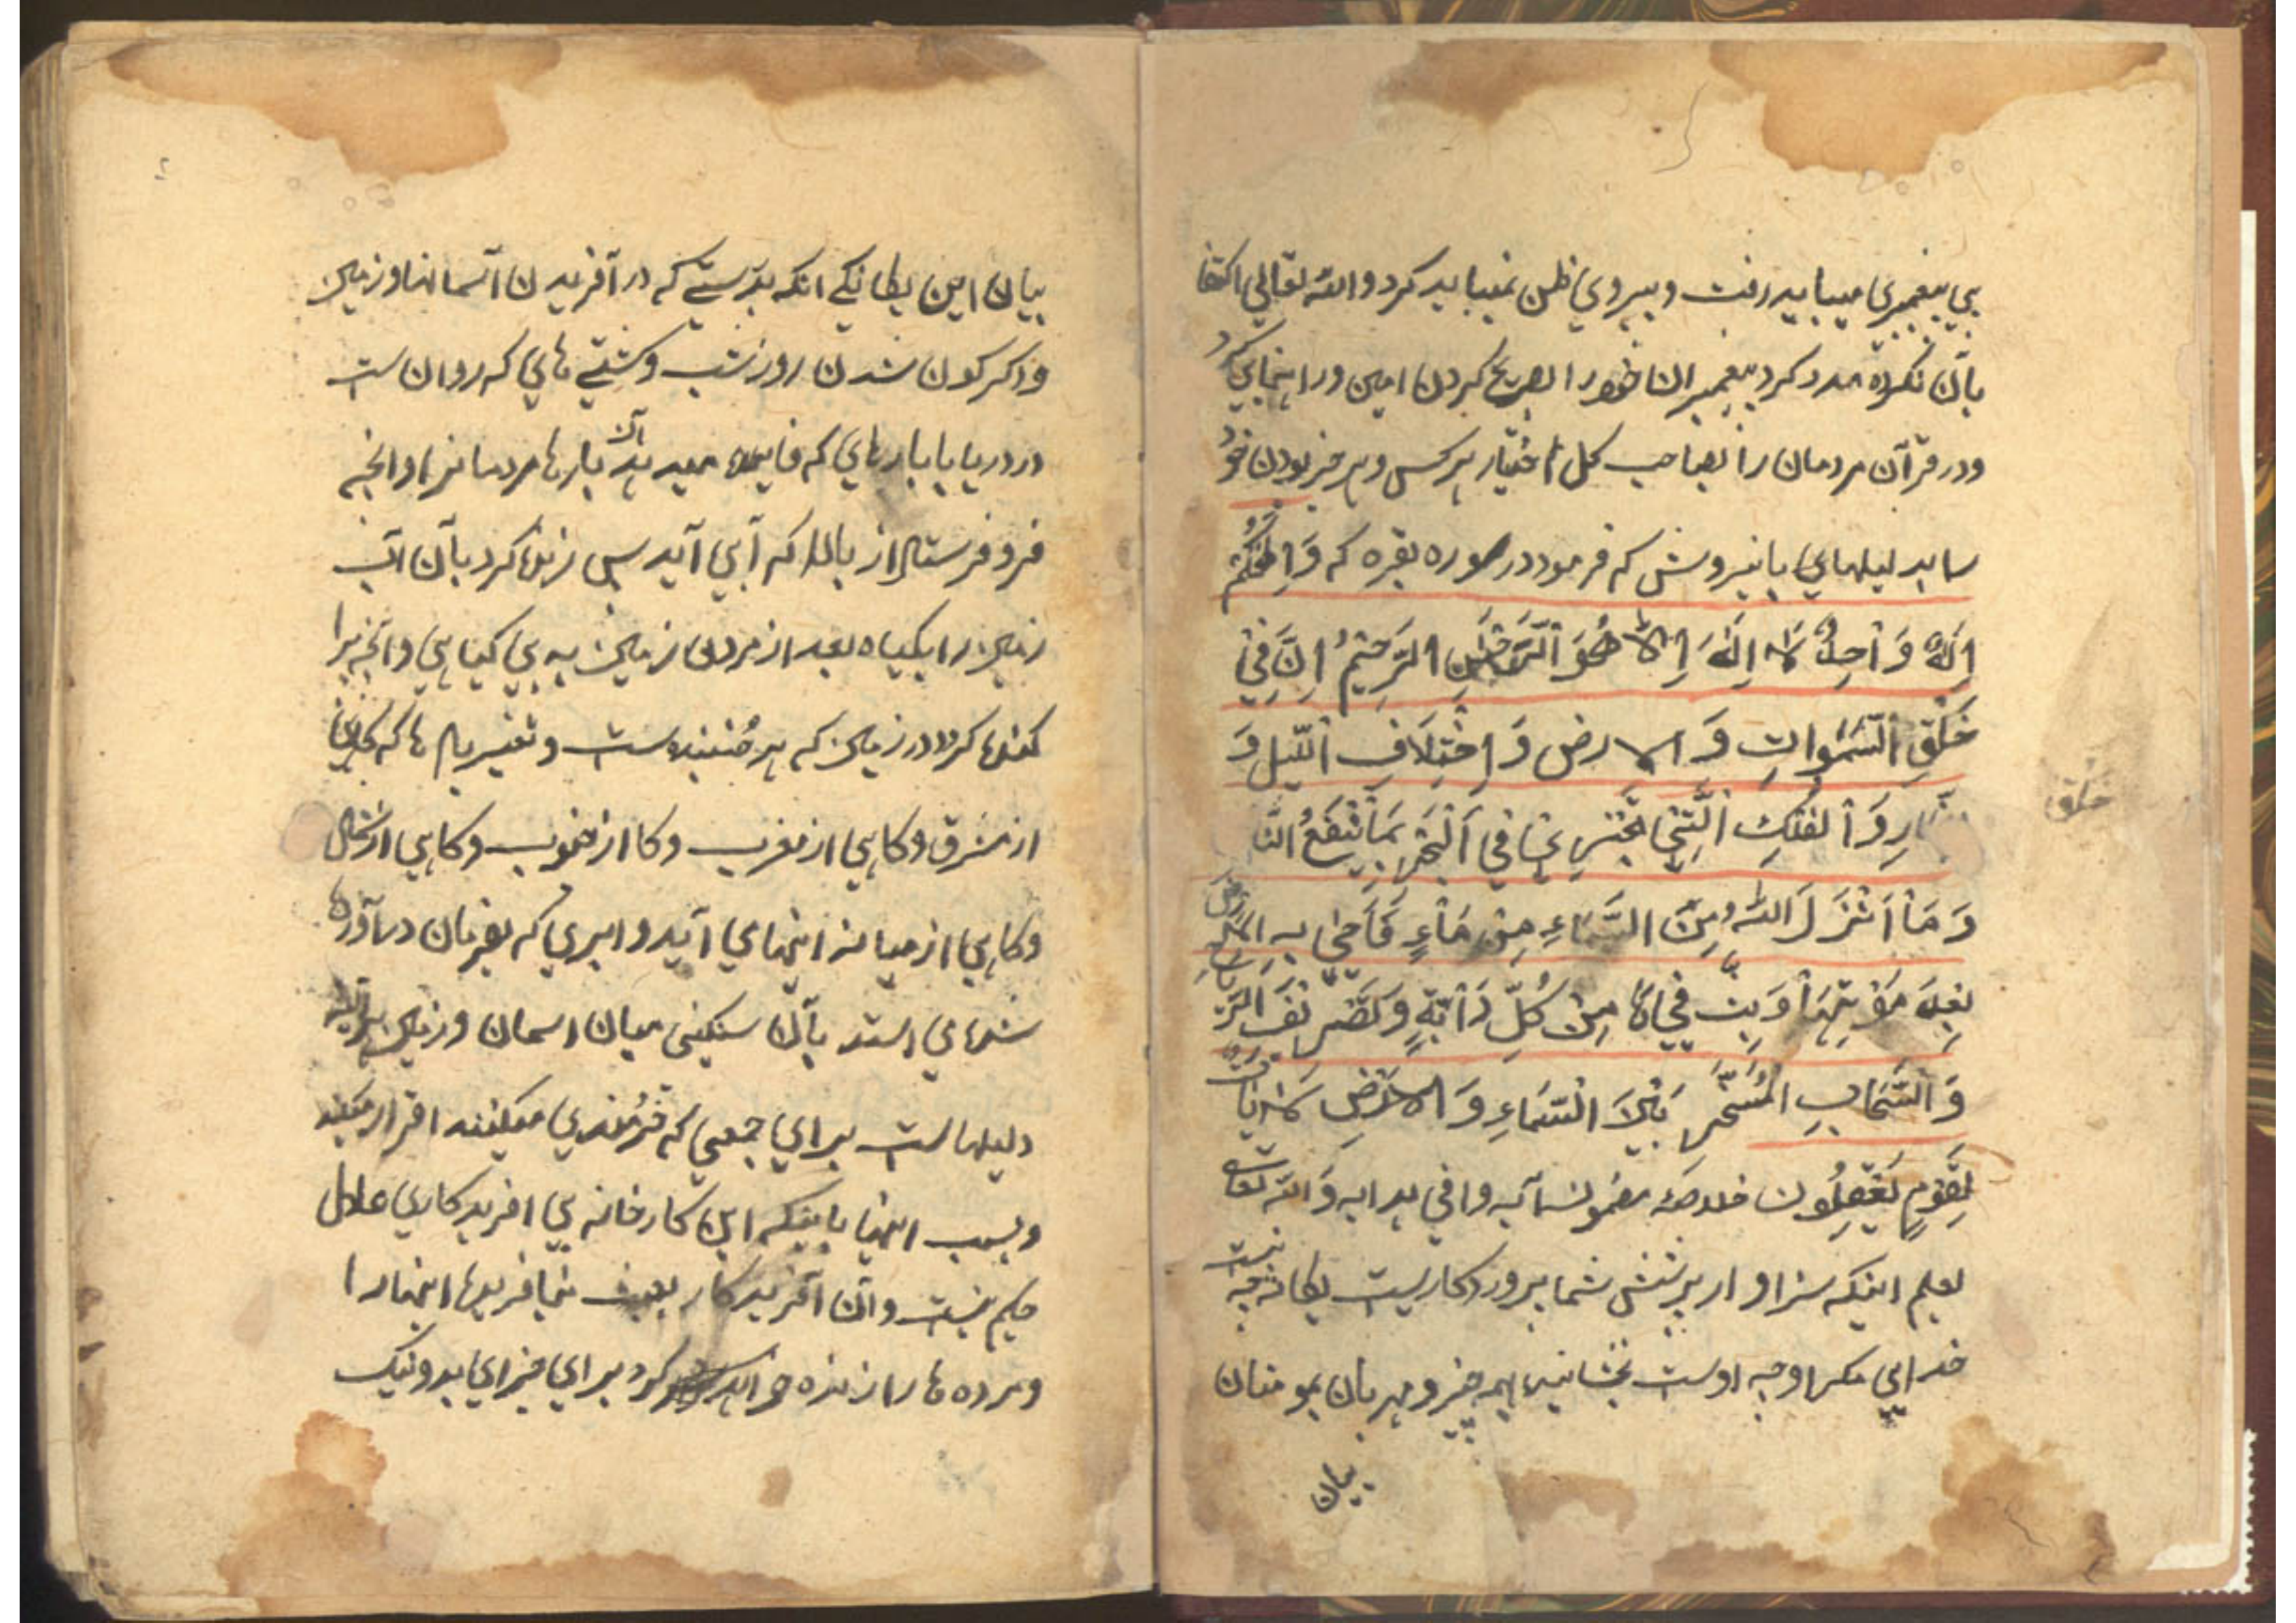 پی پیغمبری میباید رفت و پیروی ظن نمیباید کرد و الله تعالی اکتفا
بآن نکرده مدد کرد پیغمبران خود را بصریح کردن امین و راهنمایی کرد
و در قرآن مردمان را بصاحب کل اختیار هر کس و هر چیز بودن خو
سا بدلیلهای با نیروش که فرمود در سوره بقره که وَاِلٰهُكُم
اِلٰهٌ وَاحِدٌ لَا اِلٰهَ اِلَّا هُوَ الرَّحْمٰنُ الرَّحِيْمُ اِنَّ فِيْ
خَلْقِ السَّمٰوَاتِ وَ الارضِ وَ اخْتِلَافِ اللَّيلِ وَ
النَّهَارِ وَ الْفُلْكِ الَّتِيْ تَجْرِيْ فِي الْبَحْرِ بِمَا يَنْفَعُ النَّا
وَ مَا اَنْزَلَ اللهُ مِنَ السَّمَاءِ مِنْ مَاءٍ فَاَحْيٰ بِهِ الْاَرْضَ
بَعْدَ مَوْتِهَا وَ بَثَّ فِيْهَا مِنْ كُلِّ دَابَّةٍ وَ تَصْرِيْفِ الرِّيَاحِ
وَ السَّحَابِ الْمُسَخَّرِ بَيْنَ السَّمَاءِ وَ الْاَرْضِ لَاٰيَاتٍ
لِقَوْمٍ يَعْقِلُون خلاصهٔ مضمون آیه وافی هدایه وَ الله تعالی
اعلم اینکه سزاوار پرستش شما پروردکاریست یکانه نیست
خدایی مکر اوچه اوست بخشاینده همه چیز و مهربان بمومنان
بیان
خلق
بیان این یکانکی انکه بدرستی که در آفریدن اسمانها و زمین
و دکرکون شدن روز شب و کشتی های که روان است
در دریا با بارهای که فایده میدهد آن بارها مردمانرا و انچه
فرو فرستاد از بالا که آبی آید پس زنده کرد بآن اب
زمین را بکیاه بعد از مردن زمین به بی کیاهی و انچه پرا
کنده کرد در زمین که هر جنبنده است و تغییر باد ها که کاهی
از مشرق و کاهی از مغرب و کا از جنوب و کاهی از شمال
و کاهی از میانه اینهای آید و ابری که بفرمان در آورده
شده ای استد بآن سنکینی میان اسمان و زمین هر آینه
دلیلهاست برای جمعی که خردمندی میکنند اقرار میکنند
و بسبب اینها باینکه این کارخانه بی افریدکاری عادل
حکیم نیست و آن آفریدکار بعبث نیافریده اینهارا
و مرده ها را زنده خواهد کرد برای جزای بد و نیک